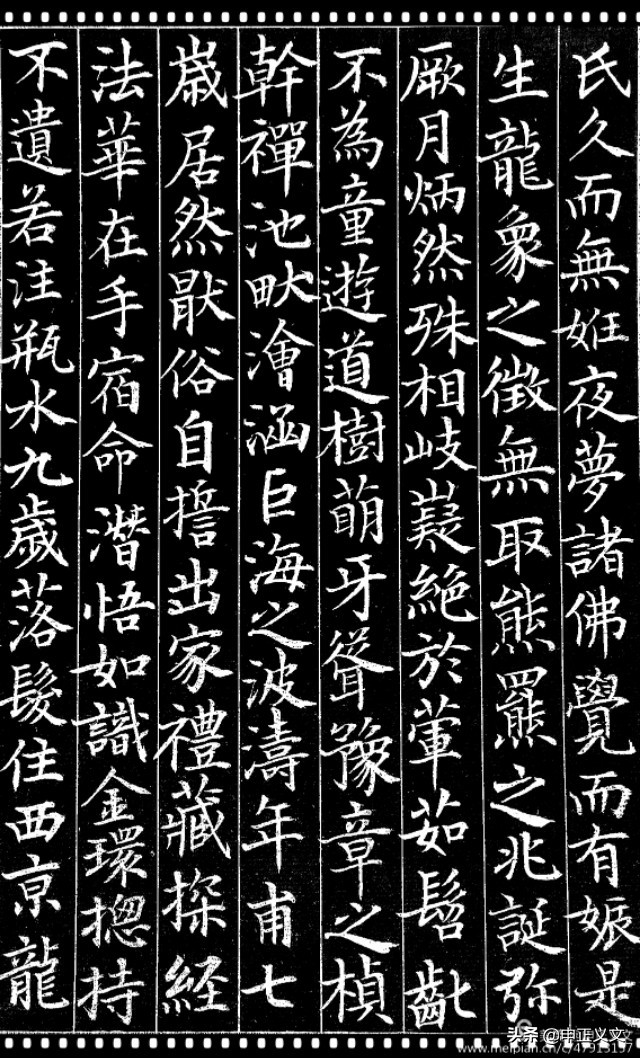 氏久而無姙夜夢諸佛覺而有娠是
生龍象之徵無取熊羆之兆誕弥
厥月炳然殊相岐嶷絕於葷茹髫齓
不為童遊道樹萌牙聳豫章之楨
幹禪池畎澮涵巨海之波濤年甫七
嵗居然猒俗自誓出家禮藏探經
法華在手宿命潛悟如識金環揔持
不遺若注瓶水九歲落髮住西京龍
头条 @申正义文